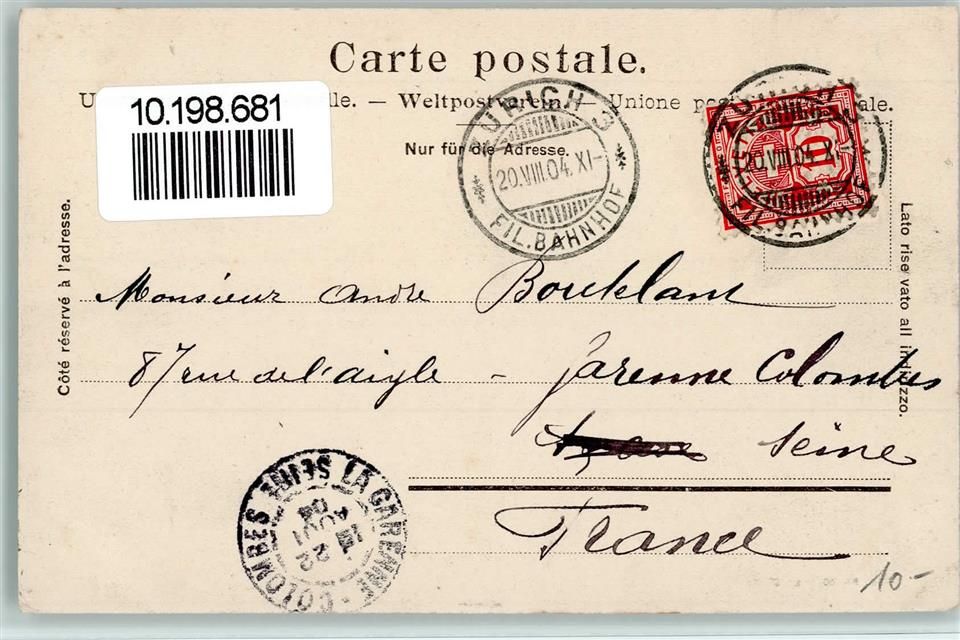 Carte postale.
10.198.681
U lle. — Weltpostverein. — Unione pos ale.
Nur für die Adresse.
ZÜRICH 3
20.VIII.04. XI-
FIL. BAHNHOF
20.VIII.04. XI-
10
Côté réservé à l'adresse.
Lato riservato all indirizzo.
Monsieur Andre
87 rue de l'aigle – Garenne Colombes
Seine
France
LA GARENNE-COLOMBES SEINE
22
AOUT
04
10-